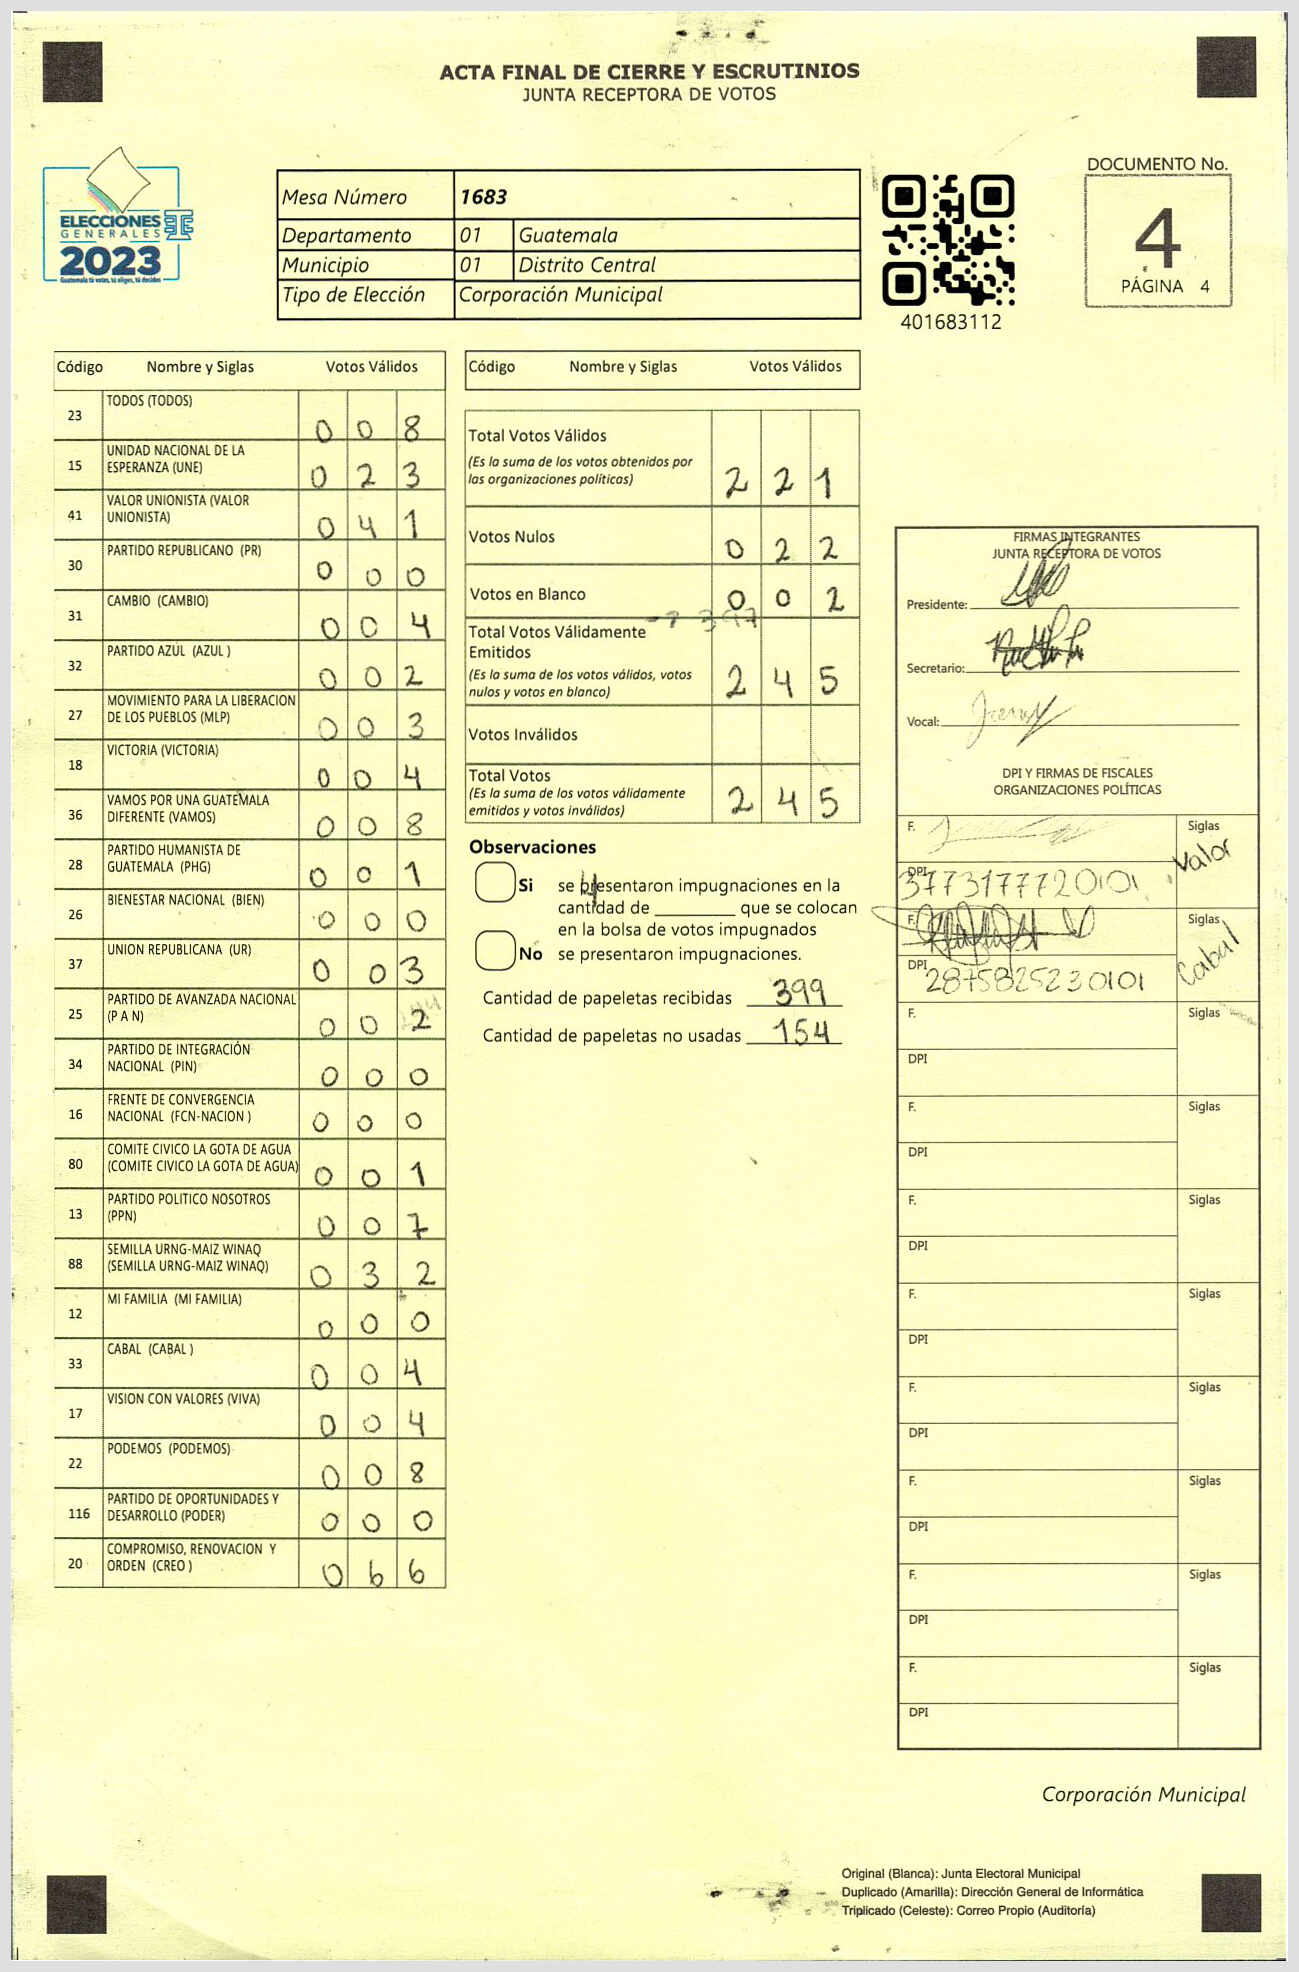 ACTA FINAL DE CIERRE Y ESCRUTINIOS
JUNTA RECEPTORA DE VOTOS
ELECCIONES
GENERALES
2023
Guatemala tú votas, tú eliges, tú decides
Mesa Número 1683
Departamento 01 Guatemala
Municipio 01 Distrito Central
Tipo de Elección Corporación Municipal
401683112
DOCUMENTO No.
4
PÁGINA 4
Código Nombre y Siglas Votos Válidos
23 TODOS (TODOS) 0 0 8
15 UNIDAD NACIONAL DE LA
ESPERANZA (UNE) 0 2 3
41 VALOR UNIONISTA (VALOR
UNIONISTA) 0 4 1
30 PARTIDO REPUBLICANO (PR) 0 0 0
31 CAMBIO (CAMBIO) 0 0 4
32 PARTIDO AZUL (AZUL ) 0 0 2
27 MOVIMIENTO PARA LA LIBERACION
DE LOS PUEBLOS (MLP) 0 0 3
18 VICTORIA (VICTORIA) 0 0 4
36 VAMOS POR UNA GUATEMALA
DIFERENTE (VAMOS) 0 0 8
28 PARTIDO HUMANISTA DE
GUATEMALA (PHG) 0 0 1
26 BIENESTAR NACIONAL (BIEN) 0 0 0
37 UNION REPUBLICANA (UR) 0 0 3
25 PARTIDO DE AVANZADA NACIONAL
(P A N) 0 0 2
34 PARTIDO DE INTEGRACIÓN
NACIONAL (PIN) 0 0 0
16 FRENTE DE CONVERGENCIA
NACIONAL (FCN-NACION ) 0 0 0
80 COMITE CIVICO LA GOTA DE AGUA
(COMITE CIVICO LA GOTA DE AGUA) 0 0 1
13 PARTIDO POLITICO NOSOTROS
(PPN) 0 0 7
88 SEMILLA URNG-MAIZ WINAQ
(SEMILLA URNG-MAIZ WINAQ) 0 3 2
12 MI FAMILIA (MI FAMILIA) 0 0 0
33 CABAL (CABAL ) 0 0 4
17 VISION CON VALORES (VIVA) 0 0 4
22 PODEMOS (PODEMOS) 0 0 8
116 PARTIDO DE OPORTUNIDADES Y
DESARROLLO (PODER) 0 0 0
20 COMPROMISO, RENOVACION Y
ORDEN (CREO ) 0 6 6
Código Nombre y Siglas Votos Válidos
Total Votos Válidos
(Es la suma de los votos obtenidos por
las organizaciones políticas) 2 2 1
Votos Nulos 0 2 2
Votos en Blanco 0 0 2
397
Total Votos Válidamente
Emitidos
(Es la suma de los votos válidos, votos
nulos y votos en blanco) 2 4 5
Votos Inválidos
Total Votos
(Es la suma de los votos válidamente
emitidos y votos inválidos) 2 4 5
Observaciones
Si se presentaron impugnaciones en la
cantidad de ________ que se colocan
en la bolsa de votos impugnados
No se presentaron impugnaciones.
Cantidad de papeletas recibidas 399
Cantidad de papeletas no usadas 154
FIRMAS INTEGRANTES
JUNTA RECEPTORA DE VOTOS
Presidente:
Secretario:
Vocal:
DPI Y FIRMAS DE FISCALES
ORGANIZACIONES POLÍTICAS
F. Siglas
Valor
DPI 3773177720101
F. Siglas
Cabal
DPI 2875825230101
F. Siglas
DPI
F. Siglas
DPI
F. Siglas
DPI
F. Siglas
DPI
F. Siglas
DPI
F. Siglas
DPI
F. Siglas
DPI
F. Siglas
DPI
Corporación Municipal
Original (Blanca): Junta Electoral Municipal
Duplicado (Amarilla): Dirección General de Informática
Triplicado (Celeste): Correo Propio (Auditoría)